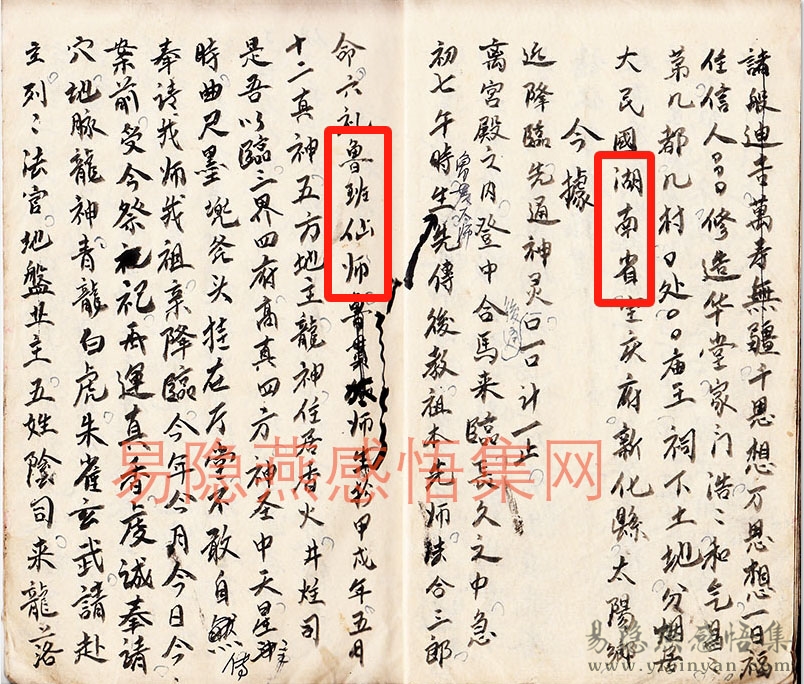 諸般迪吉萬壽無疆千思想万思想一日福
住信人吕修造华堂家门浩〻和气昌
第几都几村〻处〇〇庙王祠下土地分烟居
大民國湖南省宝庆府新化縣太陽鄉
今據
近降臨先通神灵一口計一止
離宮殿之內登中合馬来臨長久之中急
初七午時生先傳後教祖本先师法合三郎
魯班仙师
後通
命六礼魯班仙师魯班师生於甲戌年五月
十二真神五方地主龍神住居香火井灶司
是吾以臨三界四府高真四方神圣中天星主
時曲尺墨兜斧头挂在厅堂不敢自然傳
奉請我师我祖亲降臨今年今月今日今
案前受今祭祀再運真香虔誠奉請
穴地脉龍神青龍白虎朱雀玄武請赴
主列〻法官地盤业主五姓陰司来龍〻落
易隐燕感悟集网
易隐燕感悟集
www.yixinyan.com